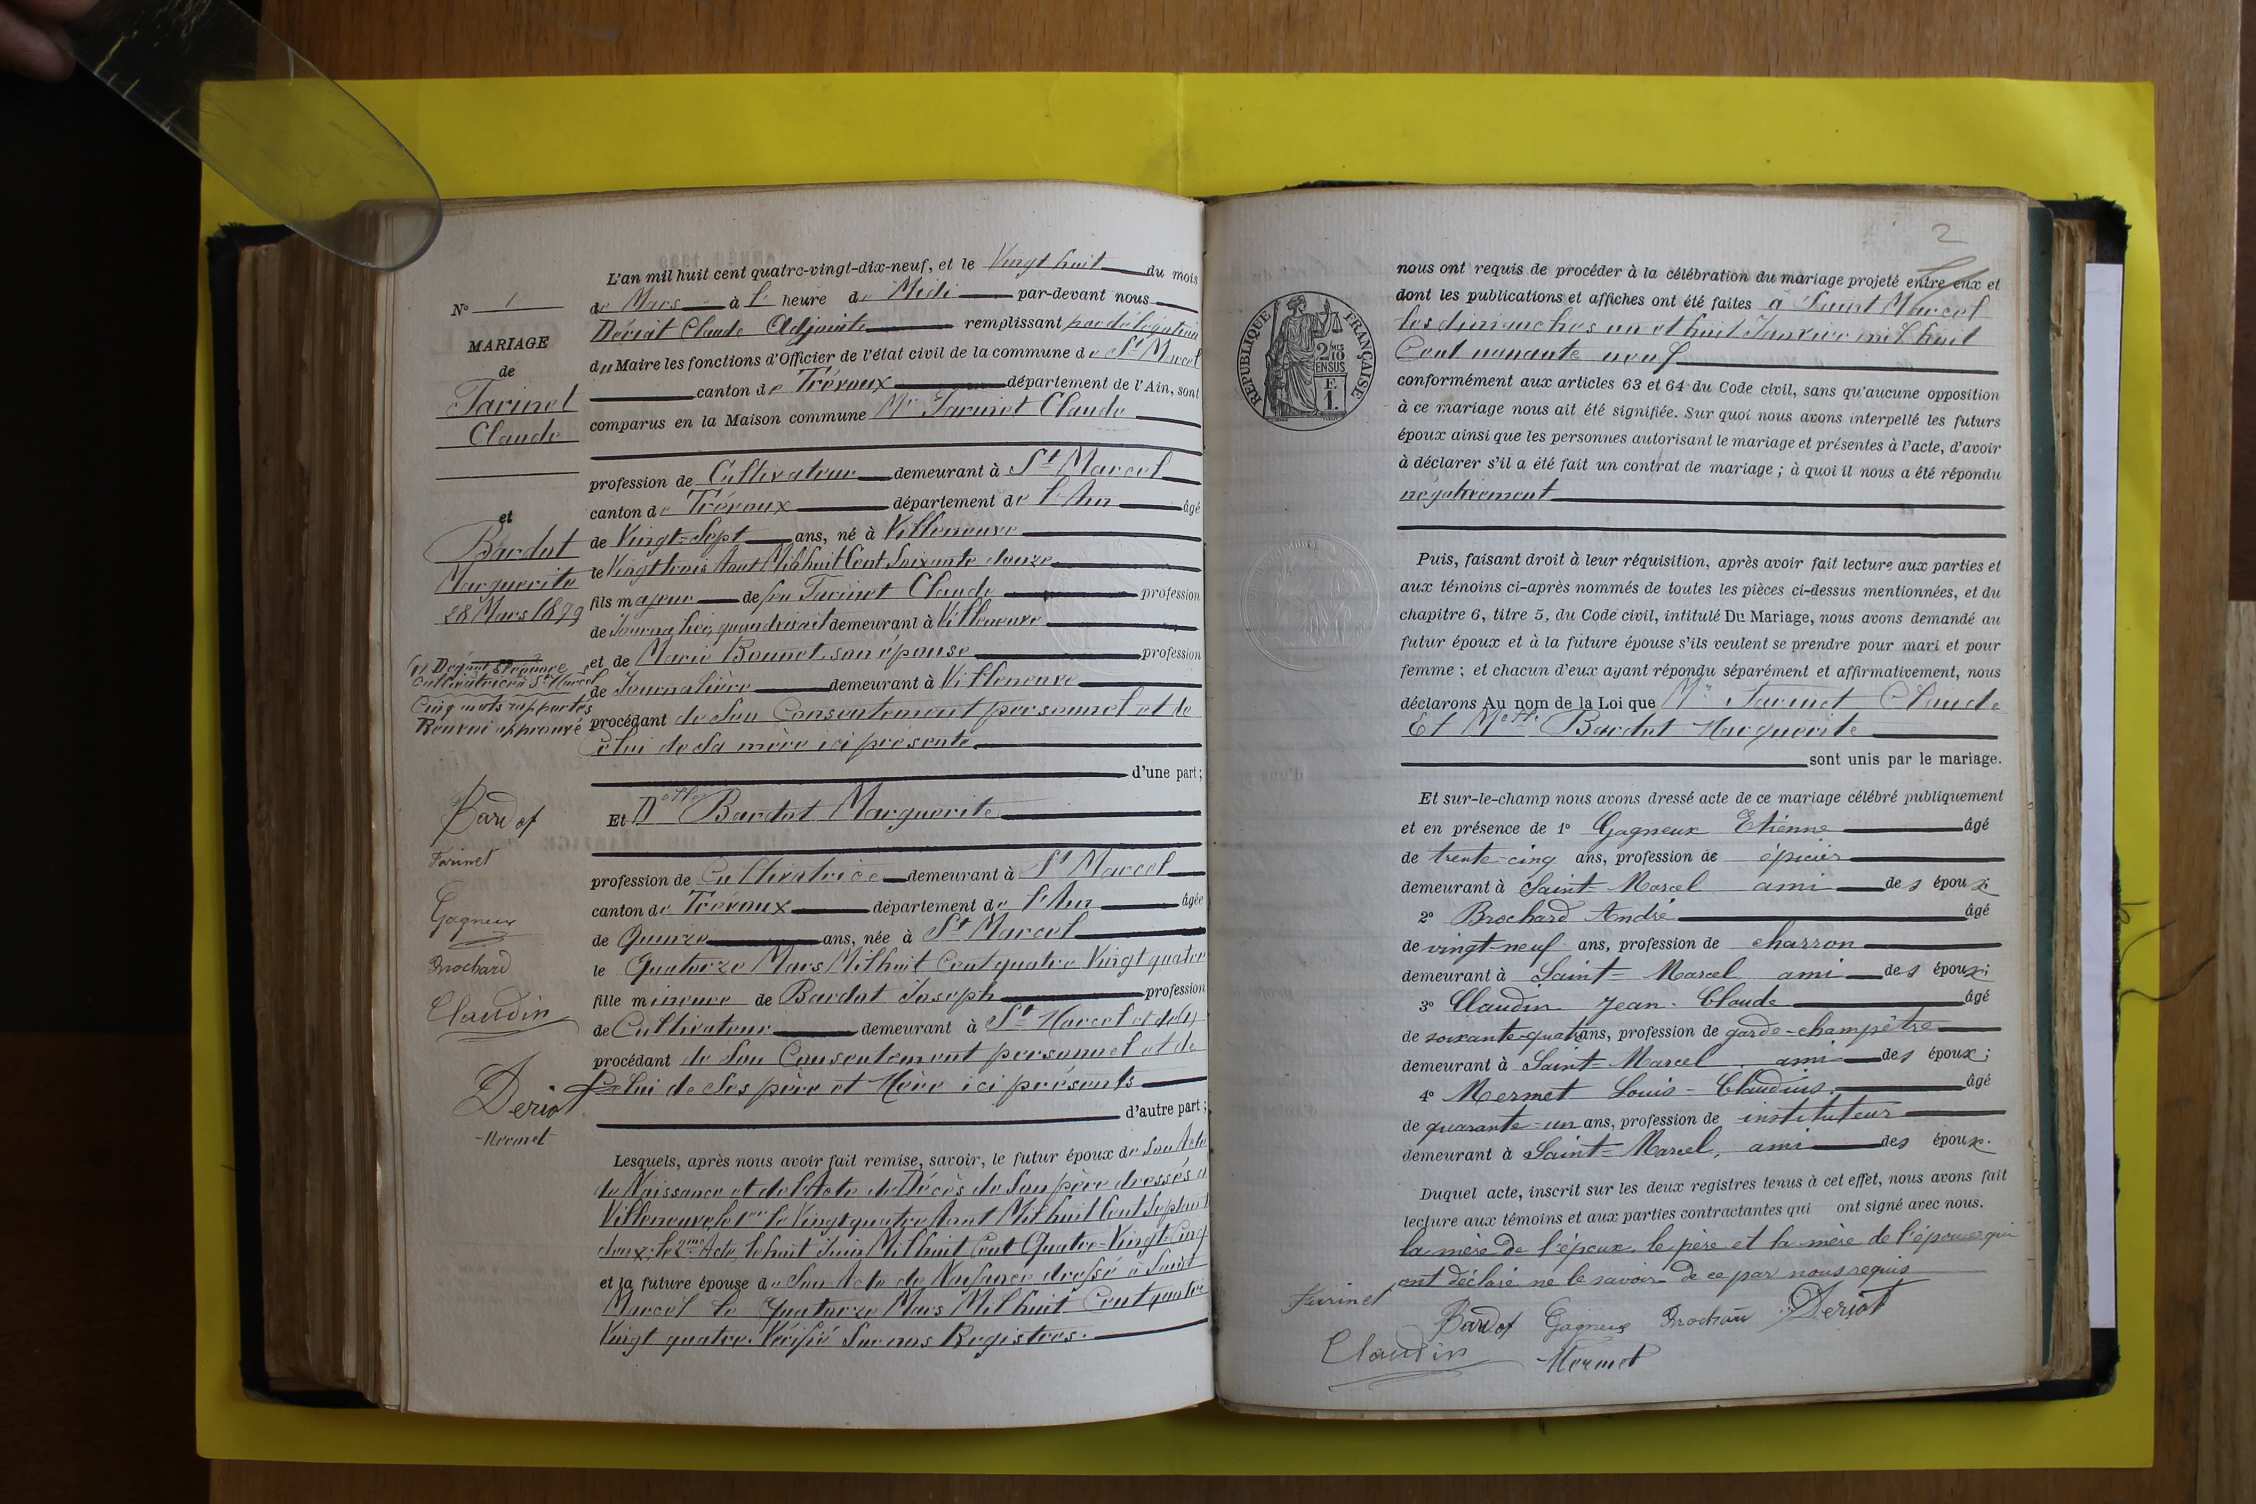 N° 1
MARIAGE
de
Farinet
Claude
et
Bardot
Marguerite
28 Mars 1879
cultivatrice à St Marcel
Cinq mots rapportés
Renvoi approuvé
Bardot
Farinet
Gagneux
Brochard
Claudin
Deriot
Mermet
L'an mil huit cent quatre-vingt-dix-neuf, et le Vingt huit du mois
de Mars à l' heure de Midi par-devant nous
Deriot Claude Adjointe remplissant par délégation
du Maire les fonctions d'Officier de l'état civil de la commune de St Marcel
canton de Trévoux département de l'Ain, sont
comparus en la Maison commune Mr Farinet Claude
profession de Cultivateur demeurant à St Marcel
canton de Trévoux département de l'Ain âgé
de Vingt-Sept ans, né à Villeneuve
le Vingt trois Aout Mil huit Cent Soixante douze
fils majeur de feu Farinet Claude profession
de Journalier, quand vivait demeurant à Villeneuve
et de Marie Bonnet son épouse profession
de Journalière demeurant à Villeneuve
procédant de Son Consentement personnel et de
Celui de Sa mère ici présente
d'une part;
Et Delle Bardot Marguerite
profession de Cultivatrice demeurant à St Marcel
canton de Trévoux département de l'Ain âgée
de Quinze ans, née à St Marcel
le Quatorze Mars Mil huit Cent quatre Vingt quatre
fille mineure de Bardot Joseph profession
de Cultivateur demeurant à St Marcel et de (1)
procédant de Son Consentement personnel et de
Celui de Ses père et Mère ici présents
d'autre part;
Lesquels, après nous avoir fait remise, savoir, le futur époux de Son Acte
de Naissance et de l'Acte de Décès de Son père dressés à
Villeneuve le 1er le Vingt quatre Aout Mil huit Cent Septante
deux, le 2me Acte, le huit Juin Mil huit Cent Quatre-Vingt Cinq
et la future épouse de Son Acte de Naissance dressé à Saint
Marcel le Quatorze Mars Mil huit Cent quatre
Vingt quatre. Vérifié Sur nos Registres.
2
RÉPUBLIQUE FRANÇAISE
2 10
EN SUS
nous ont requis de procéder à la célébration du mariage projeté entre eux et
dont les publications et affiches ont été faites à Saint Marcel
les dimanches un et huit Janvier mil huit
Cent nonante neuf
conformément aux articles 63 et 64 du Code civil, sans qu'aucune opposition
à ce mariage nous ait été signifiée. Sur quoi nous avons interpellé les futurs
époux ainsi que les personnes autorisant le mariage et présentes à l'acte, d'avoir
à déclarer s'il a été fait un contrat de mariage; à quoi il nous a été répondu
négativement
Puis, faisant droit à leur réquisition, après avoir fait lecture aux parties et
aux témoins ci-après nommés de toutes les pièces ci-dessus mentionnées, et du
chapitre 6, titre 5, du Code civil, intitulé Du Mariage, nous avons demandé au
futur époux et à la future épouse s'ils veulent se prendre pour mari et pour
femme; et chacun d'eux ayant répondu séparément et affirmativement, nous
déclarons Au nom de la Loi que Mr Farinet Claude
Et Melle Bardot Marguerite
sont unis par le mariage.
Et sur-le-champ nous avons dressé acte de ce mariage célébré publiquement
et en présence de 1° Gagneux Etienne âgé
de trente-cinq ans, profession de épicier
demeurant à Saint-Marcel ami des époux;
2° Brochard André âgé
de vingt-neuf ans, profession de charron
demeurant à Saint-Marcel ami des époux;
3° Claudin Jean-Claude âgé
de soixante-quatre ans, profession de garde-champêtre
demeurant à Saint-Marcel ami des époux;
4° Mermet Louis-Claudius, âgé
de quarante-un ans, profession de instituteur
demeurant à Saint-Marcel, ami des époux.
Duquel acte, inscrit sur les deux registres tenus à cet effet, nous avons fait
lecture aux témoins et aux parties contractantes qui ont signé avec nous.
la mère de l'époux, le père et la mère de l'épouse qui
ont déclaré ne le savoir de ce par nous requis
Farinet
Bardot Gagneux Brochard Deriot
Claudin Mermet